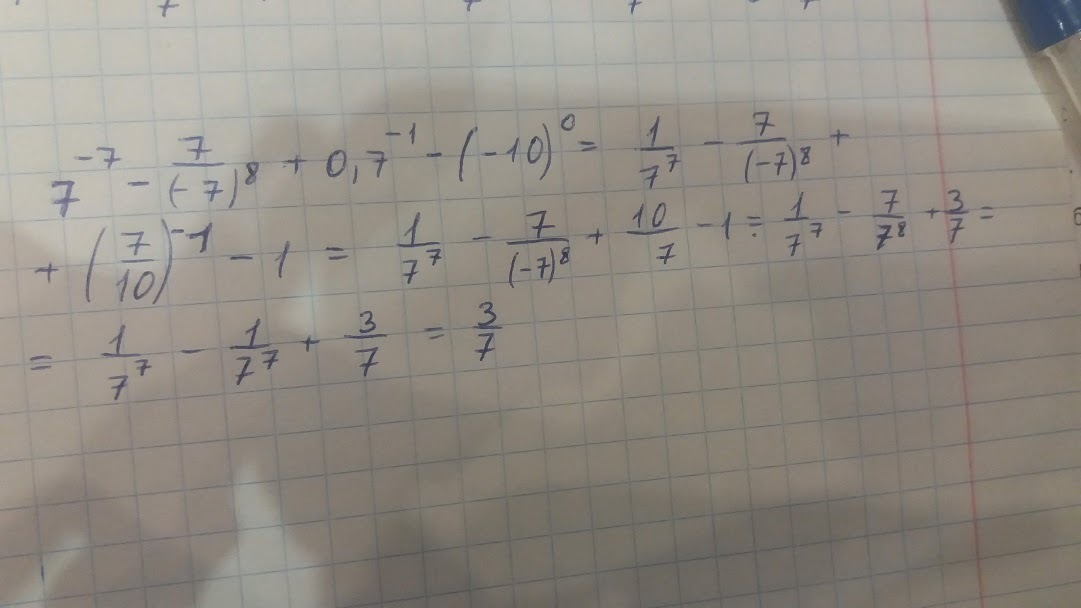 7^{-7} - \frac{7}{(-7)^8} + 0,7^{-1} - (-10)^0 = \frac{1}{7^7} - \frac{7}{(-7)^8} +
+ (\frac{7}{10})^{-1} - 1 = \frac{1}{7^7} - \frac{7}{(-7)^8} + \frac{10}{7} - 1 = \frac{1}{7^7} - \frac{7}{7^8} + \frac{3}{7} =
= \frac{1}{7^7} - \frac{1}{7^7} + \frac{3}{7} = \frac{3}{7}